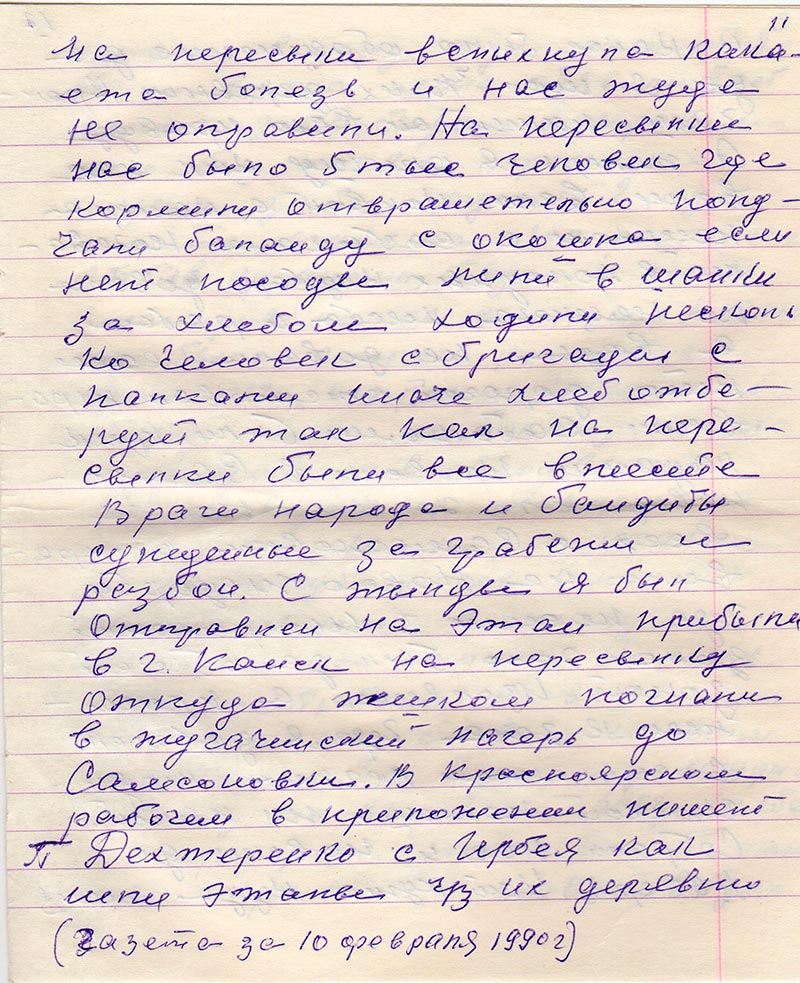 11
На пересылки вспыхнула кака-
ета болезь и нас туда
не оправили. На пересылки
нас было 5 тыс человек где
кормили отврашетельно полу-
чали баланду с окошка если
нет посоды лили в шапки
за хлебом ходили нескол
ко человек с бригады с
палками иначе хлеб отбе-
рут так как на пере-
сылки были все вместе
Враги народа и бандиты
сужденные за грабежи и
разбои. С тынды я был
отправлен на этап прибыли
в г. Канск на пересылку
откуда пешком погнали
в тугачинский лагерь до
Самсоновки. В Красноярском
рабочем в приложении пишет
П Дехтеренко с Ирбея как
шли этапы чрз их деревню
(Газета за 10 февраля 1990г)